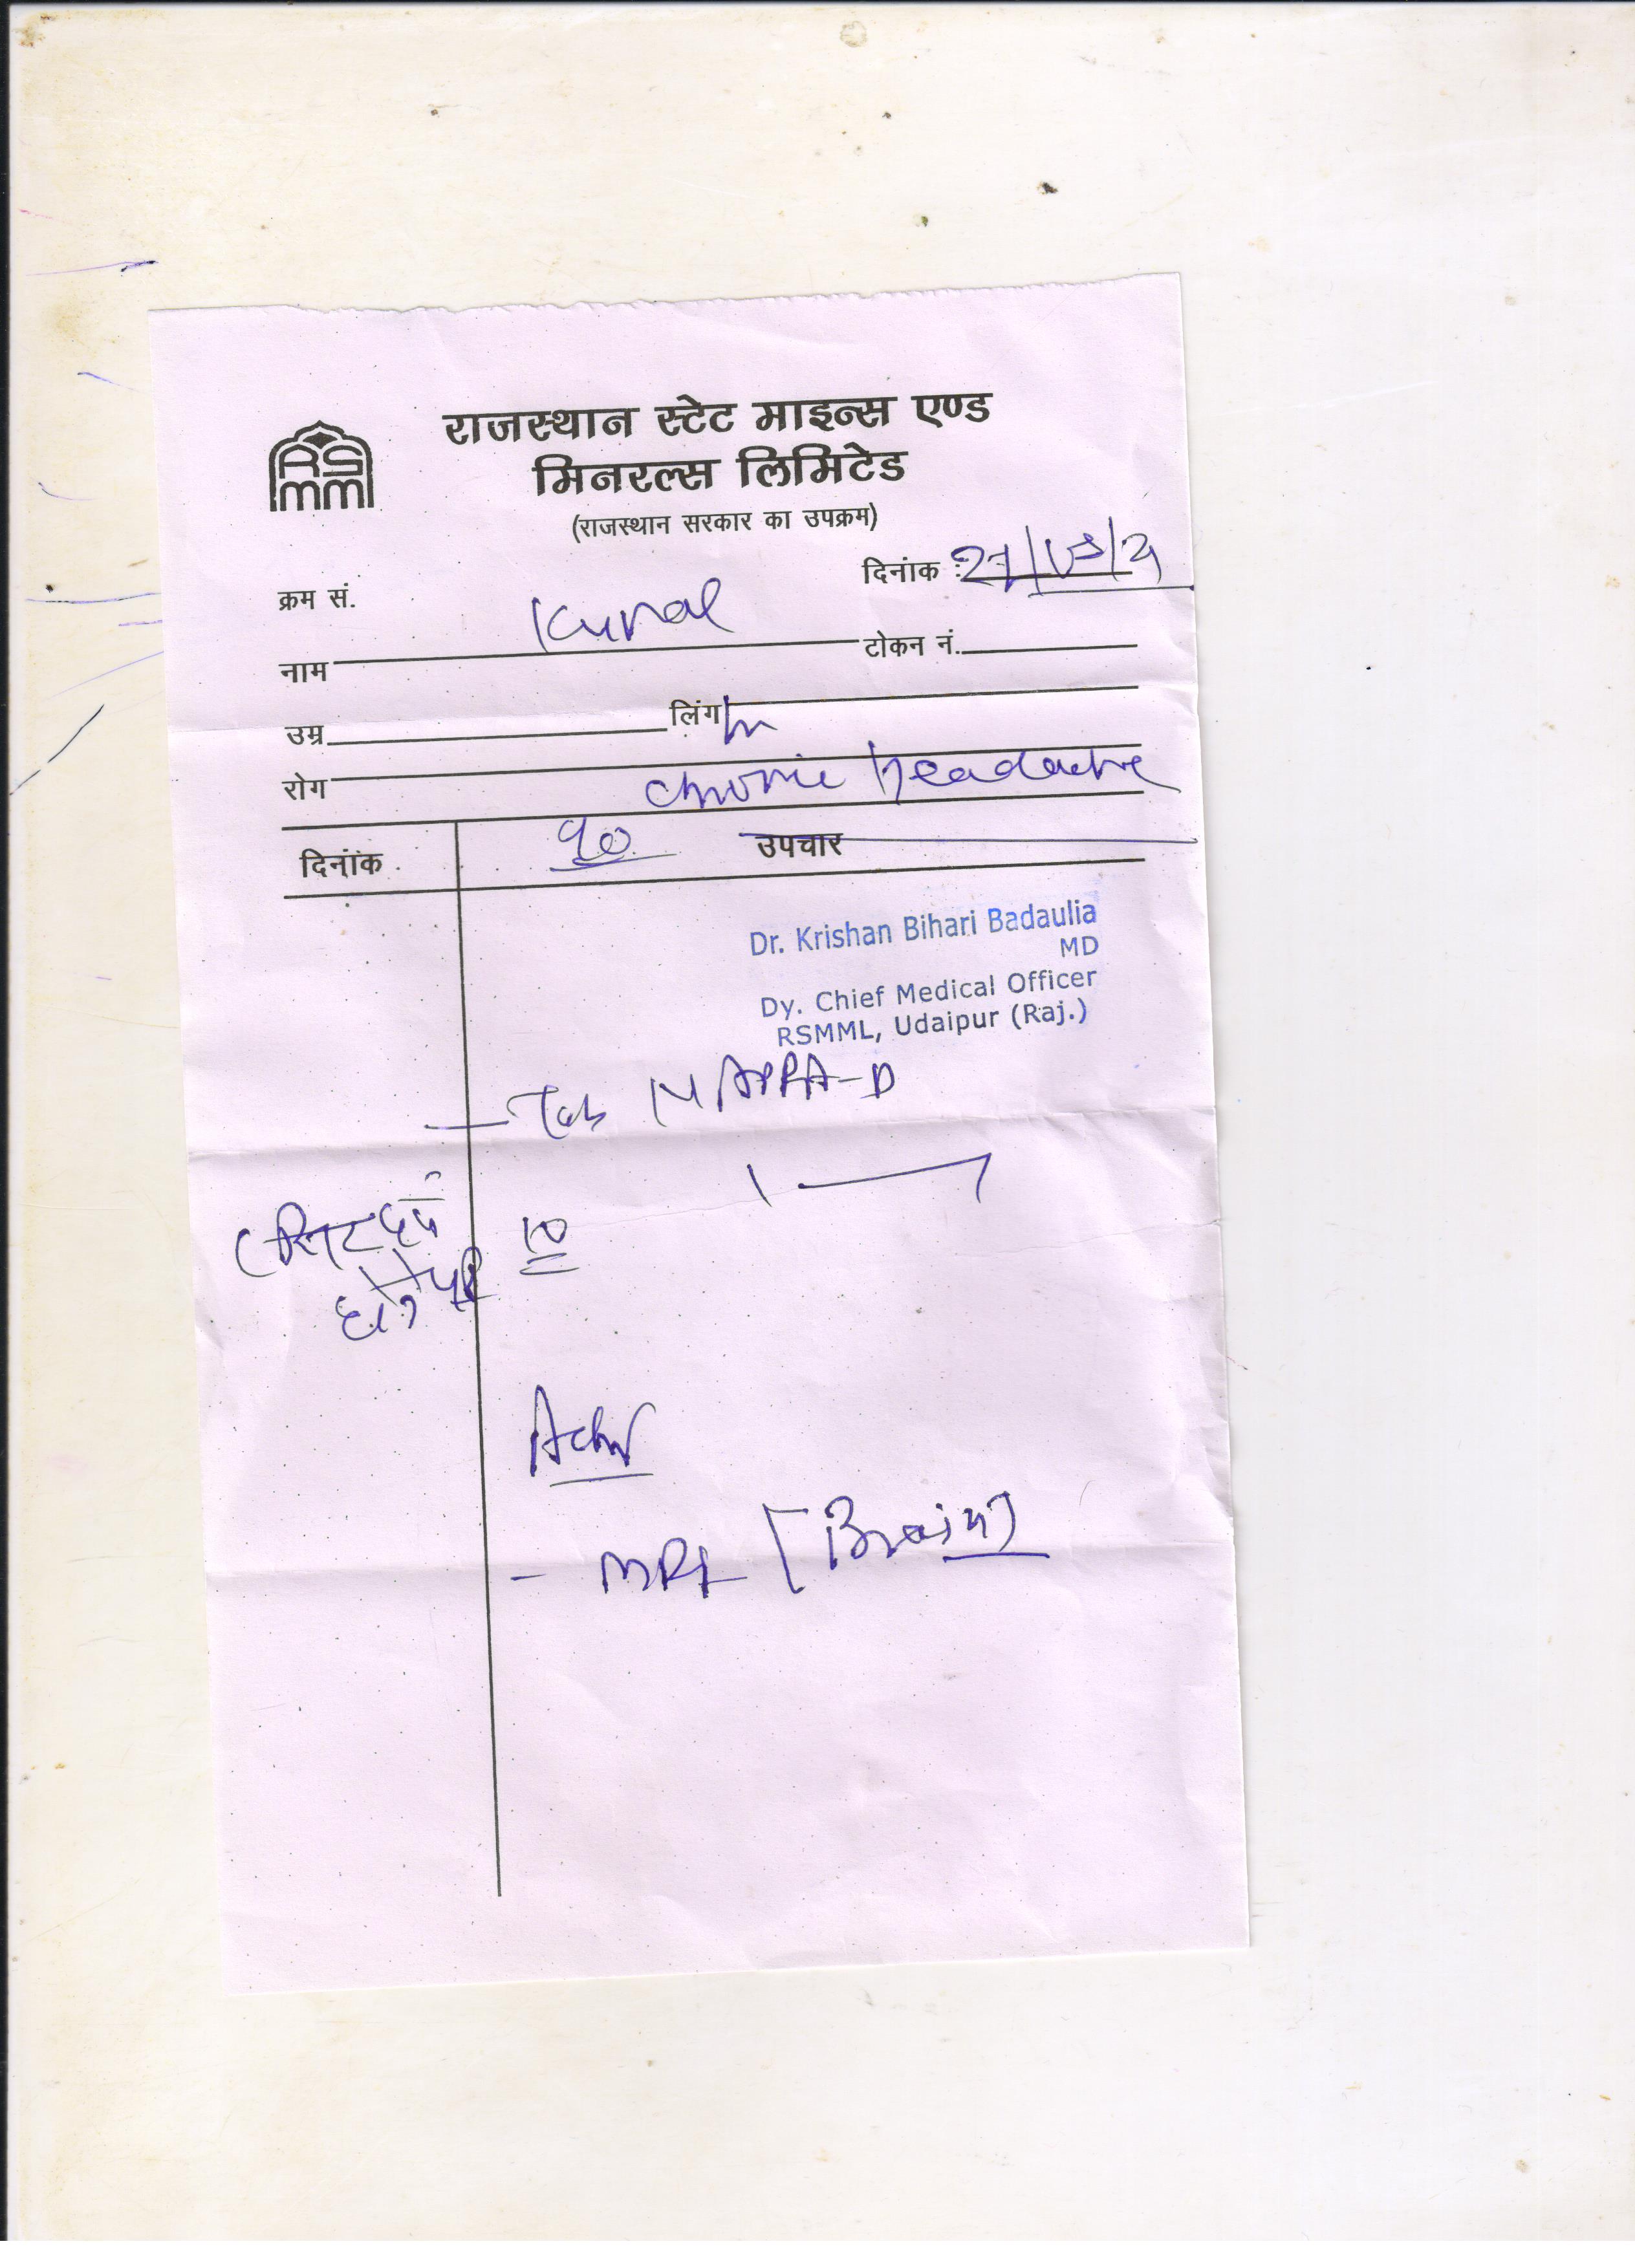 राजस्थान स्टेट माइन्स एण्ड
मिनरल्स लिमिटेड
(राजस्थान सरकार का उपक्रम)
RS
mm
दिनांक :
क्रम सं.
Kunal
नाम
टोकन नं.
उम्र
लिंग M
रोग
chronic headache
दिनांक
उपचार
Dr. Krishan Bihari Badaulia
MD
Dy. Chief Medical Officer
RSMML, Udaipur (Raj.)
- Tab NAPRA-D
(सिर दर्द
होने पर
10
Adv
- MRI [Brain]